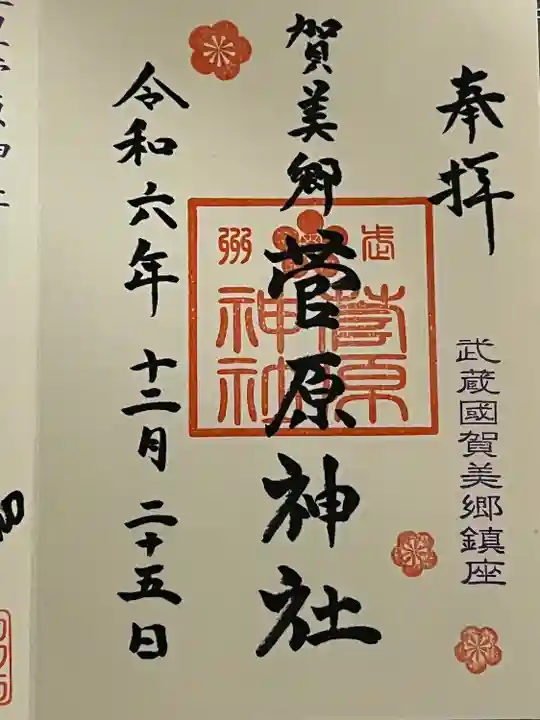 奉拝
武蔵國賀美郷鎮座
賀美郷 菅原神社
武州
菅原
神社
令和六年 十二月 二十五日